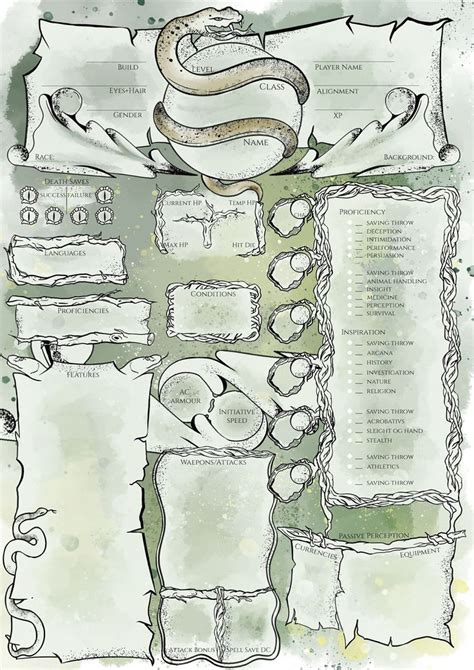 Build
Level
Player Name
Eyes+Hair
Class
Alignment
Gender
XP
Name
Race:
Background:
Death Saves
Success/Failure
Current HP
Temp HP
Max HP
Hit Die
Cha
Languages
Conditions
Proficiencies
Features
AC
Armour
Initiative
Speed
Waepons/Attacks
Attack Bonus
Spell Save DC
Proficiency
Saving Throw
Deception
Intimidation
Pereformance
Persuasion
Saving Throw
Animal Handling
Insight
Medicine
Perception
Survival
Inspiration
Saving Throw
Arcana
History
Investigation
Nature
Religion
Saving Throw
Acrobativs
Sleight og Hand
Stealth
Saving Throw
Athletics
Saving Throw
Passive Perception
Currencies
Equipment